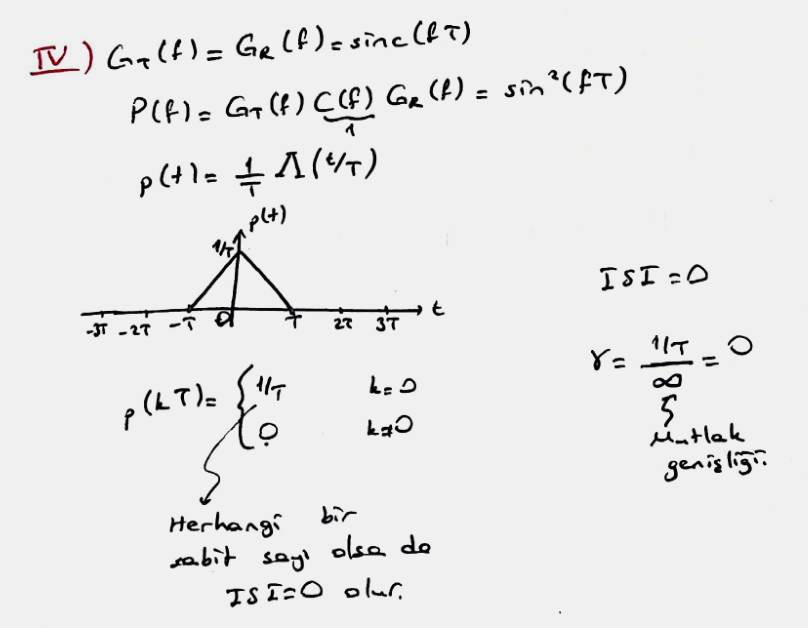 IV) G_T(f) = G_R(f) = sinc(fT)
P(f) = G_T(f) C(f) G_R(f) = sin²(fT)
1
p(t) = 1/T Λ(t/T)
p(t)
1/T
t
-3T -2T -T 0 T 2T 3T
p(kT) = { 1/T k=0
0 k≠0
Herhangi bir
sabit sayı olsa da
ISI=0 olur.
ISI=0
γ = 1/T / ∞ = 0
Mutlak
genişliği.